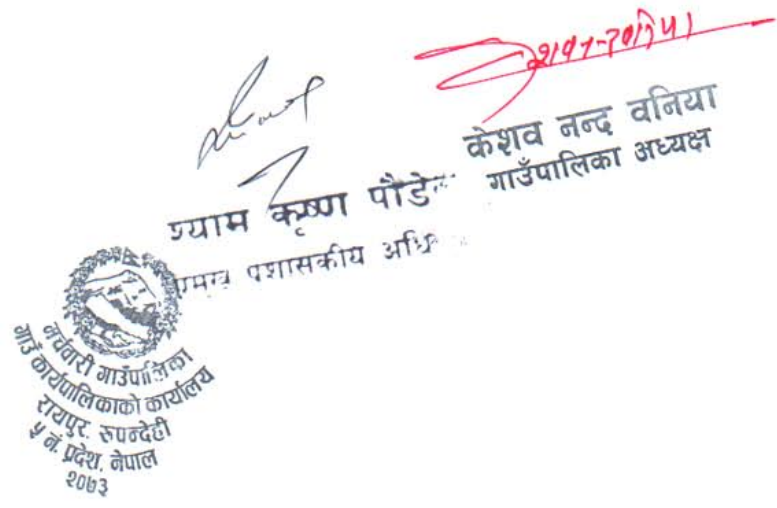 केशव नन्द वनिया
गाउँपालिका अध्यक्ष
श्याम कृष्ण पौडे
प्रमुख प्रशासकीय अधि
मर्चवारी गाउँपालिका
गाउँ कार्यपालिकाको कार्यालय
रायपुर, रुपन्देही
५ नं. प्रदेश, नेपाल
२०७३